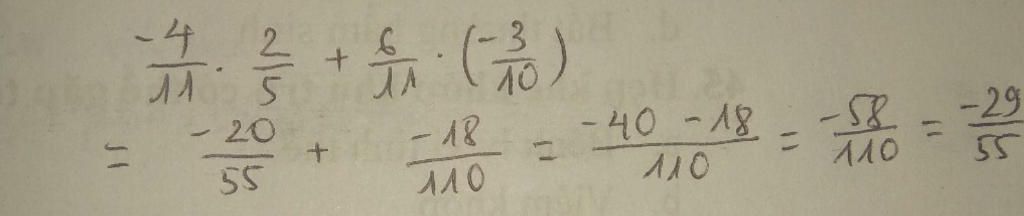 -4/11 · 2/5 + 6/11 · (-3/10)
= -20/55 + -18/110 = -40 -18/110 = -58/110 = -29/55